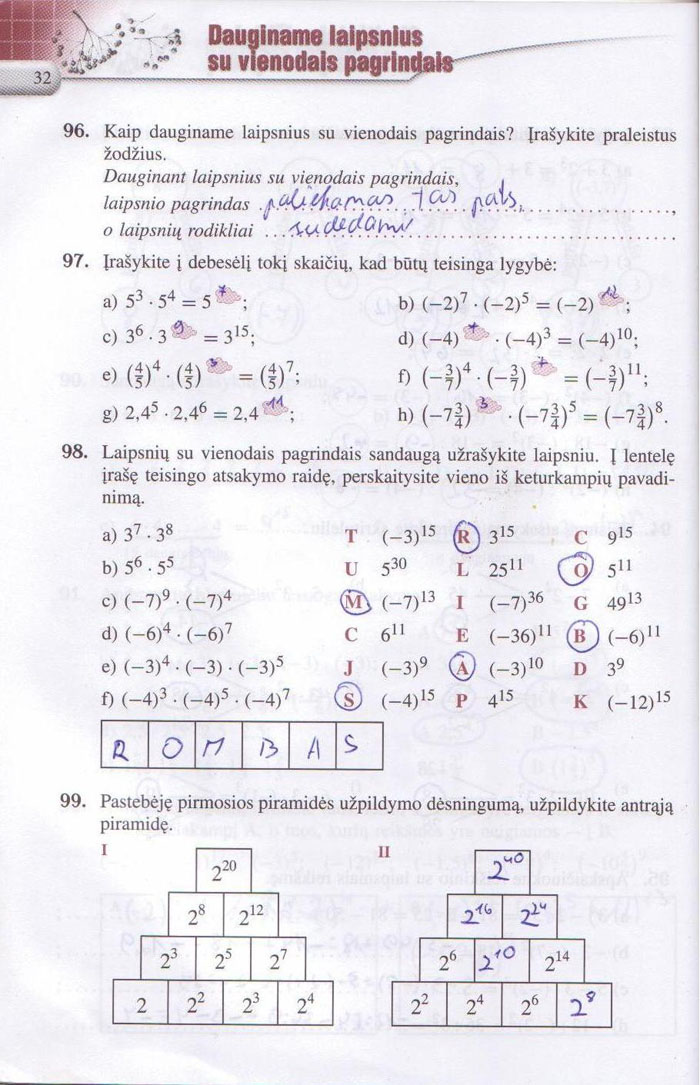 Dauginame laipsnius
su vienodais pagrindais
32
96. Kaip dauginame laipsnius su vienodais pagrindais? Įrašykite praleistus
žodžius.
Dauginant laipsnius su vienodais pagrindais,
laipsnio pagrindas paliekamas tas pats,
o laipsnių rodikliai sudedami
97. Įrašykite į debesėlį tokį skaičių, kad būtų teisinga lygybė:
a) 5³ · 5⁴ = 5⁷; b) (−2)⁷ · (−2)⁵ = (−2)¹²;
c) 3⁶ · 3⁹ = 3¹⁵; d) (−4)⁷ · (−4)³ = (−4)¹⁰;
e) (4/5)⁴ · (4/5)³ = (4/5)⁷; f) (−3/7)⁴ · (−3/7)⁷ = (−3/7)¹¹;
g) 2,4⁵ · 2,4⁶ = 2,4¹¹; h) (−7 3/4)³ · (−7 3/4)⁵ = (−7 3/4)⁸.
98. Laipsnių su vienodais pagrindais sandaugą užrašykite laipsniu. Į lentelę
įrašę teisingo atsakymo raidę, perskaitysite vieno iš keturkampių pavadi-
nimą.
a) 3⁷ · 3⁸ T (−3)¹⁵ R 3¹⁵ C 9¹⁵
b) 5⁶ · 5⁵ U 5³⁰ L 25¹¹ O 5¹¹
c) (−7)⁹ · (−7)⁴ M (−7)¹³ I (−7)³⁶ G 49¹³
d) (−6)⁴ · (−6)⁷ C 6¹¹ E (−36)¹¹ B (−6)¹¹
e) (−3)⁴ · (−3) · (−3)⁵ J (−3)⁹ A (−3)¹⁰ D 3⁹
f) (−4)³ · (−4)⁵ · (−4)⁷ S (−4)¹⁵ P 4¹⁵ K (−12)¹⁵
R O M B A S
99. Pastebėję pirmosios piramidės užpildymo dėsningumą, užpildykite antrąją
piramidę.
I II
2²⁰ 2⁴⁰
2⁸ 2¹² 2¹⁶ 2²⁴
2³ 2⁵ 2⁷ 2⁶ 2¹⁰ 2¹⁴
2 2² 2³ 2⁴ 2² 2⁴ 2⁶ 2⁸